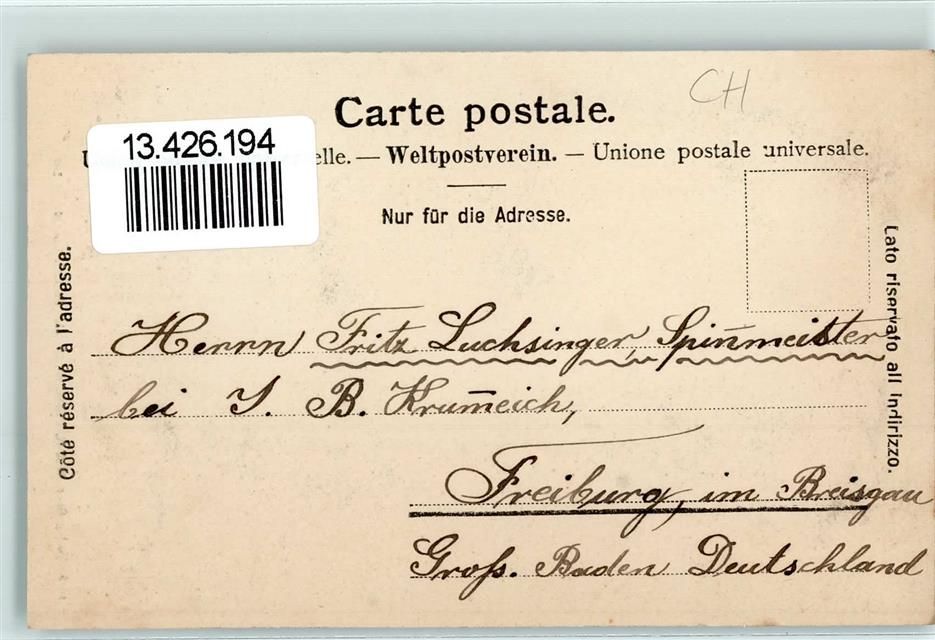 CH
Carte postale.
13.426.194
elle. — Weltpostverein. — Unione postale universale.
Nur für die Adresse.
Côté réservé à l'adresse.
Lato riservato all indirizzo.
Herrn Fritz Luchsinger, Spin̄meister
bei J. B. Krum̄eich,
Freiburg, im Breisgau
Groß. Baden Deutschland